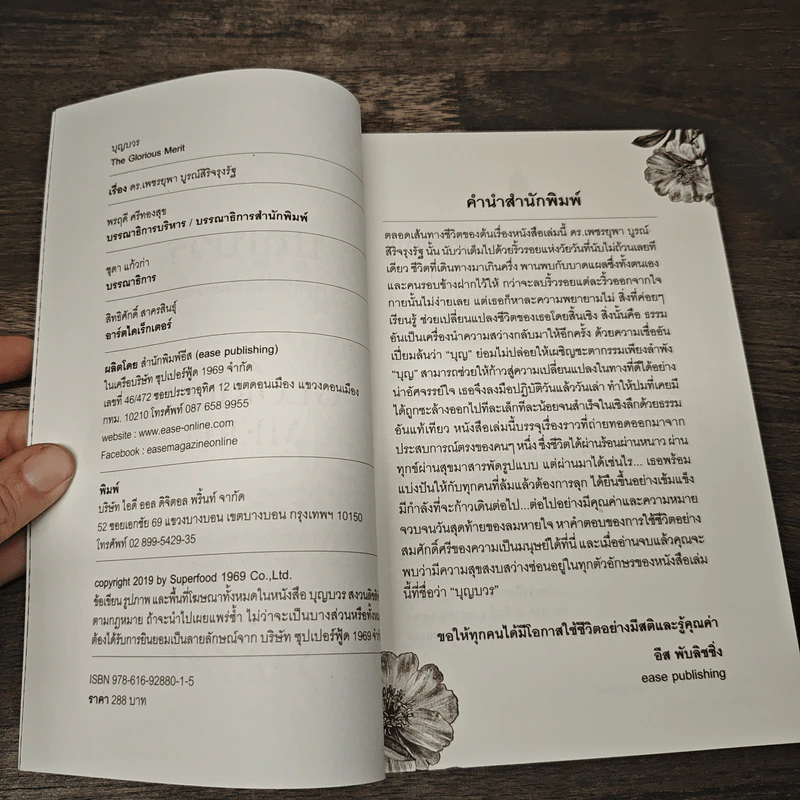 บุญบวร
The Glorious Merit
เรื่อง ดร.เพชรยุพา บูรณ์สิริจรุงรัฐ
พรฤดี ศรีทองสุข
บรรณาธิการบริหาร / บรรณาธิการสำนักพิมพ์
ชุดา แก้วก่า
บรรณาธิการ
สิทธิศักดิ์ สาครสินธุ์
อาร์ตไดเร็กเตอร์
ผลิตโดย สำนักพิมพ์อีส (ease publishing)
ในเครือบริษัท ซุปเปอร์ฟู้ด 1969 จำกัด
เลขที่ 46/472 ซอยประชาอุทิศ 12 เขตดอนเมือง แขวงดอนเมือง
กทม. 10210 โทรศัพท์ 087 658 9955
website : www.ease-online.com
Facebook : easemagazineonline
พิมพ์
บริษัท ไอดี ออล ดิจิตอล พริ้นท์ จำกัด
52 ซอยเอกชัย 69 แขวงบางบอน เขตบางบอน กรุงเทพฯ 10150
โทรศัพท์ 02 899-5429-35
copyright 2019 by Superfood 1969 Co.,Ltd.
ข้อเขียน รูปภาพ และพื้นที่โฆษณาทั้งหมดในหนังสือ บุญบวร สงวนลิขสิทธิ์
ตามกฎหมาย ถ้าจะนำไปเผยแพร่ซ้ำ ไม่ว่าจะเป็นบางส่วนหรือทั้งหมด
ต้องได้รับการยินยอมเป็นลายลักษณ์จาก บริษัท ซุปเปอร์ฟู้ด 1969 จำกัด
ISBN 978-616-92880-1-5
ราคา 288 บาท
คำนำสำนักพิมพ์
ตลอดเส้นทางชีวิตของต้นเรื่องหนังสือเล่มนี้ ดร.เพชรยุพา บูรณ์
สิริจรุงรัฐ นั้น นับว่าเต็มไปด้วยริ้วรอยแห่งวัยวันที่นับไม่ถ้วนเลยที
เดียว ชีวิตที่เดินทางมาเกินครึ่ง พานพบกับบาดแผลซึ่งทั้งตนเอง
และคนรอบข้างฝากไว้ให้ กว่าจะลบริ้วรอยแต่ละริ้วออกจากใจ
กายนั้นไม่ง่ายเลย แต่เธอก็หาละความพยายามไม่ สิ่งที่ค่อยๆ
เรียนรู้ ช่วยเปลี่ยนแปลงชีวิตของเธอโดยสิ้นเชิง สิ่งนั้นคือ ธรรม
อันเป็นเครื่องนำความสว่างกลับมาให้อีกครั้ง ด้วยความเชื่ออัน
เปี่ยมล้นว่า “บุญ” ย่อมไม่ปล่อยให้เผชิญชะตากรรมเพียงลำพัง
“บุญ” สามารถช่วยให้ก้าวสู่ความเปลี่ยนแปลงในทางที่ดีได้อย่าง
น่าอัศจรรย์ใจ เธอจึงลงมือปฏิบัติวันแล้ววันเล่า ทำให้ปมที่เคยมี
ได้ถูกชะล้างออกไปทีละเล็กทีละน้อยจนสำเร็จในเชิงลึกด้วยธรรม
อันแท้เทียว หนังสือเล่มนี้บรรจุเรื่องราวที่ถ่ายทอดออกมาจาก
ประสบการณ์ตรงของคนๆ หนึ่ง ซึ่งชีวิตได้ผ่านร้อนผ่านหนาว ผ่าน
ทุกข์ผ่านสุขมาสารพัดรูปแบบ แต่ผ่านมาได้เช่นไร... เธอพร้อม
แบ่งปันให้กับทุกคนที่ล้มแล้วต้องการลุก ได้ยืนขึ้นอย่างเข้มแข็ง
มีกำลังที่จะก้าวเดินต่อไป...ต่อไปอย่างมีคุณค่าและความหมาย
จวบจนวันสุดท้ายของลมหายใจ หาคำตอบของการใช้ชีวิตอย่าง
สมศักดิ์ศรีของความเป็นมนุษย์ได้ที่นี่ และเมื่ออ่านจบแล้วคุณจะ
พบว่ามีความสุขสงบสว่างซ่อนอยู่ในทุกตัวอักษรของหนังสือเล่ม
นี้ที่ชื่อว่า “บุญบวร”
ขอให้ทุกคนได้มีโอกาสใช้ชีวิตอย่างมีสติและรู้คุณค่า
อีส พับลิชชิ่ง
ease publishing